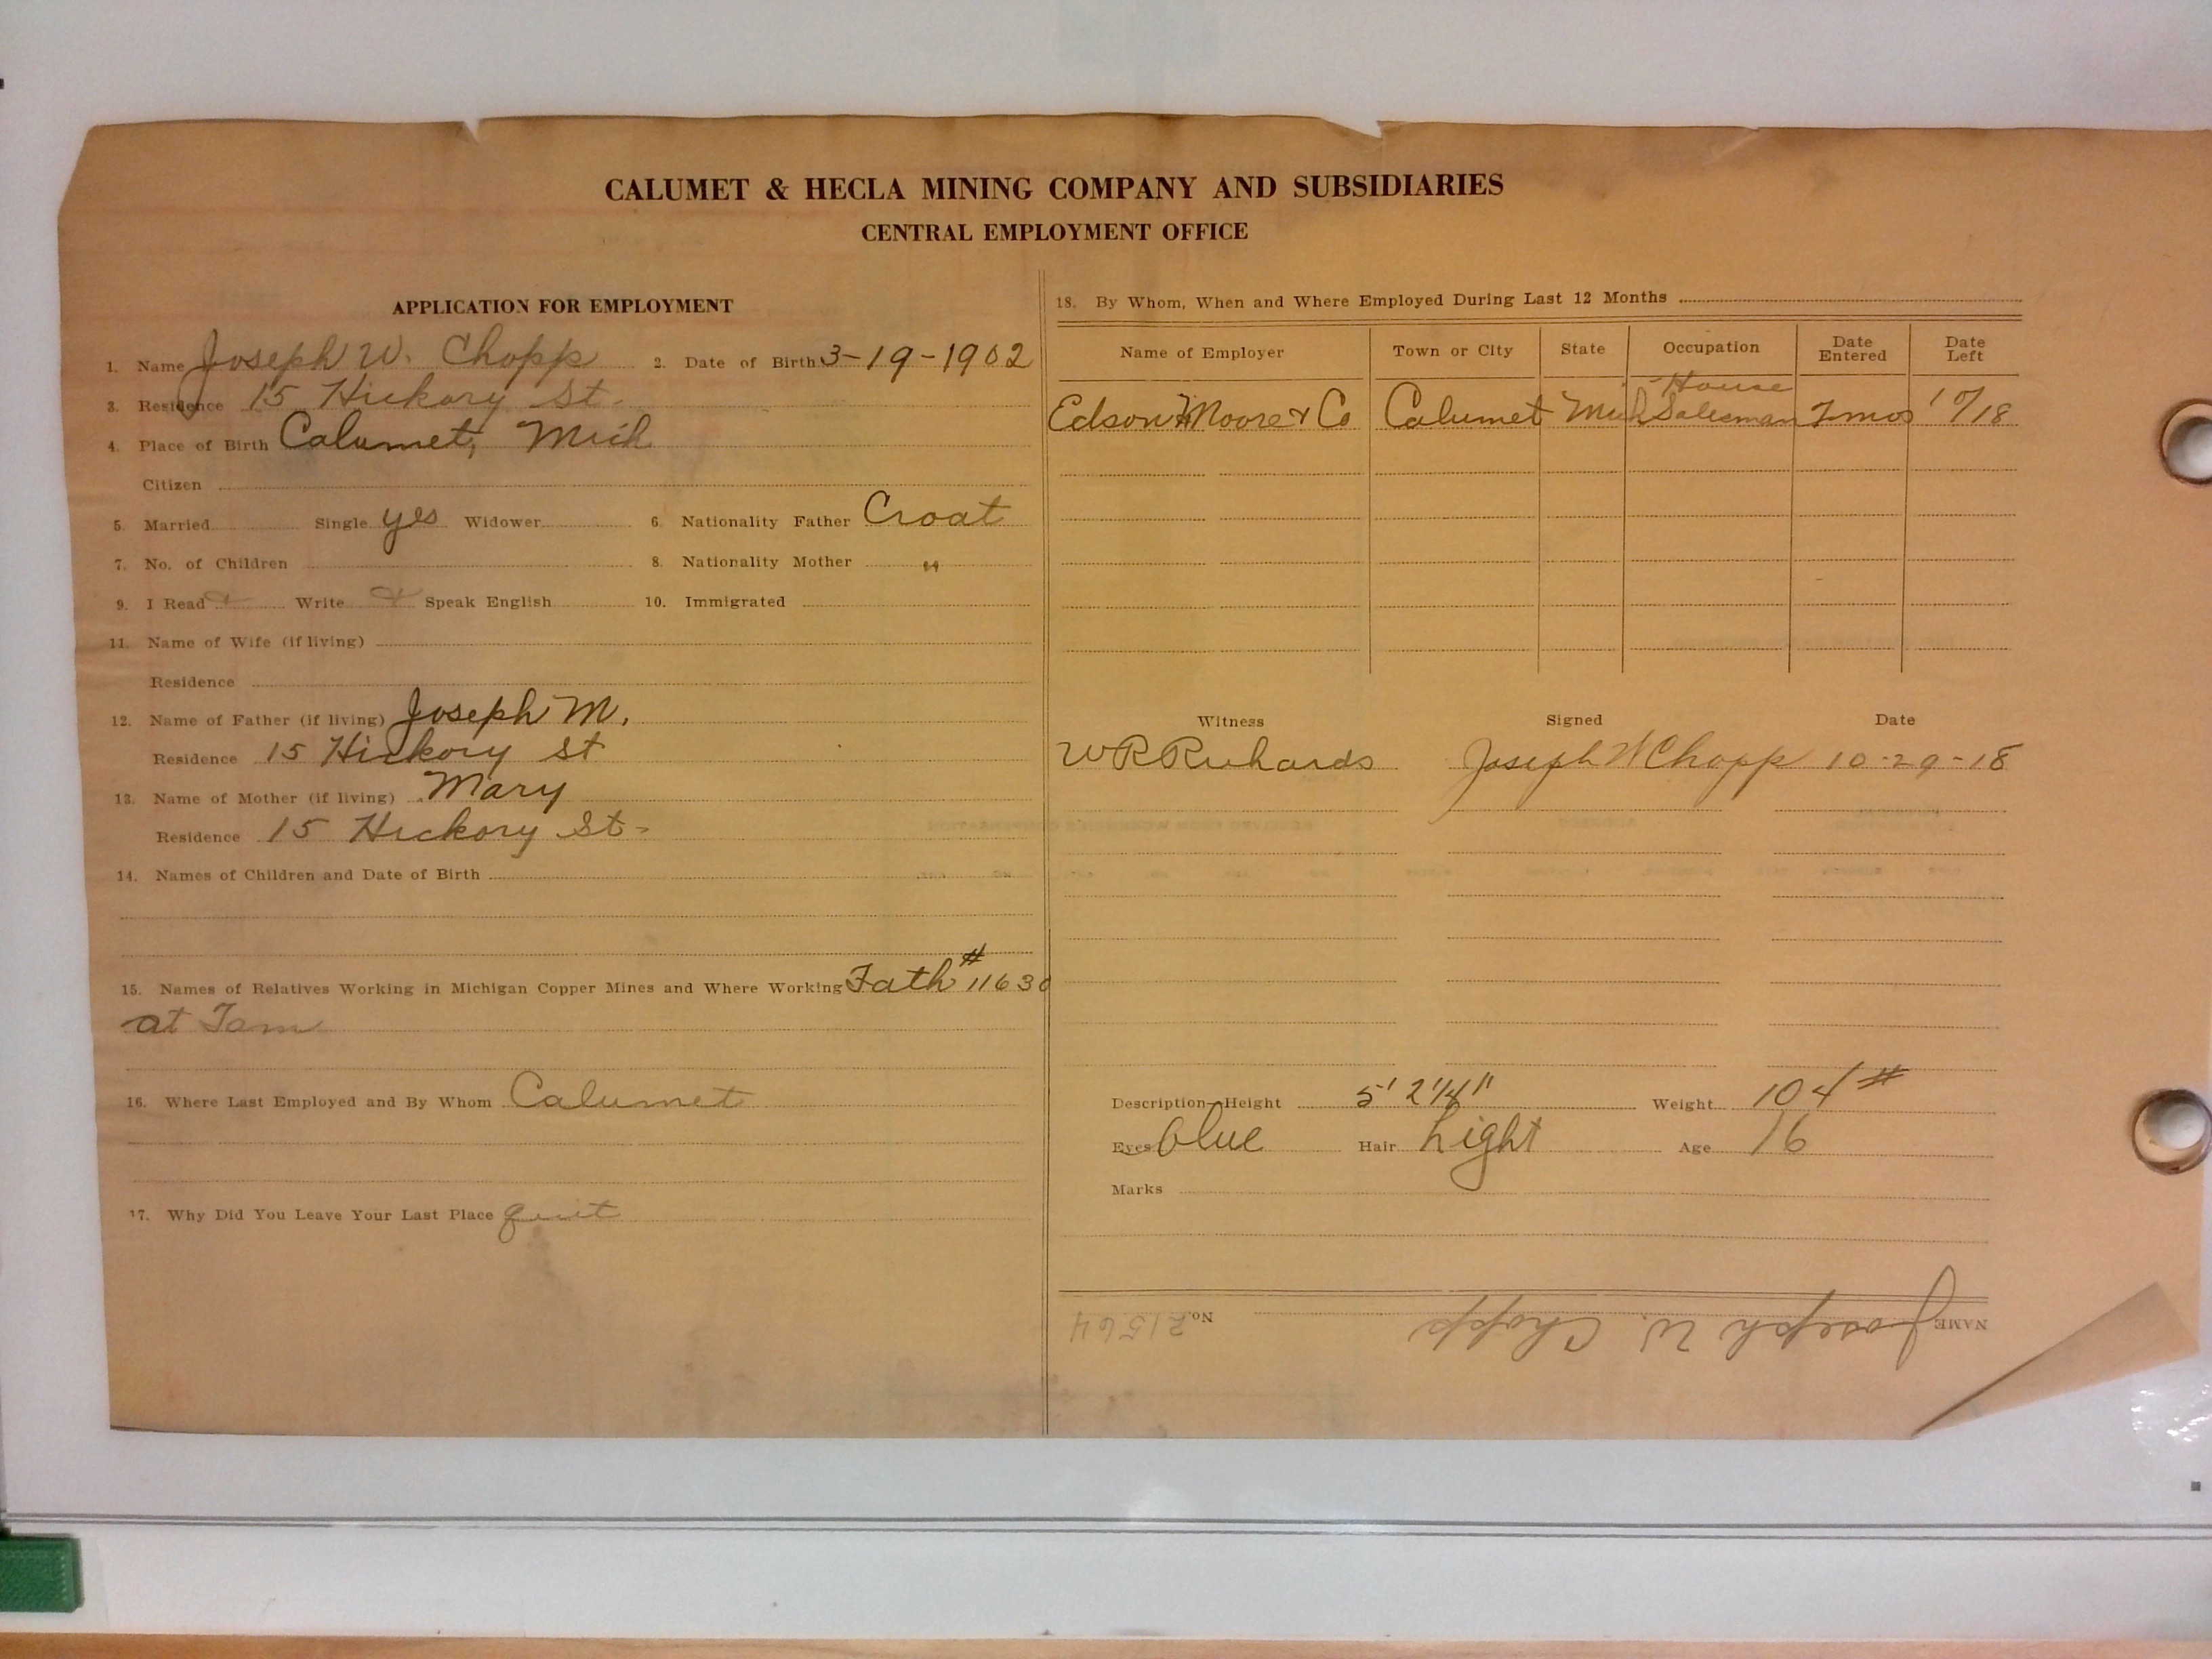 CALUMET & HECLA MINING COMPANY AND SUBSIDIARIES
CENTRAL EMPLOYMENT OFFICE
APPLICATION FOR EMPLOYMENT
1. Name Joseph W. Chopp 2. Date of Birth 3-19-1902
3. Residence 15 Hickory St.
4. Place of Birth Calumet, Mich
Citizen
5. Married Single yes Widower 6. Nationality Father Croat
7. No. of Children 8. Nationality Mother "
9. I Read Write Speak English 10. Immigrated
11. Name of Wife (if living)
Residence
12. Name of Father (if living) Joseph M.
Residence 15 Hickory St
13. Name of Mother (if living) Mary
Residence 15 Hickory St-
14. Names of Children and Date of Birth
15. Names of Relatives Working in Michigan Copper Mines and Where Working Fath # 11630
at Tam
16. Where Last Employed and By Whom Calumet
17. Why Did You Leave Your Last Place quit
18. By Whom, When and Where Employed During Last 12 Months
Name of Employer Town or City State Occupation Date Entered Date Left
Edson Moore & Co Calumet Mich House Salesman mos 10/18
Witness Signed Date
W R Richards Joseph W Chopp 10-29-18
Description—Height 5' 2 1/4" Weight 104#
Eyes blue Hair Light Age 16
Marks
NAME Joseph W. Chopp No. 21564